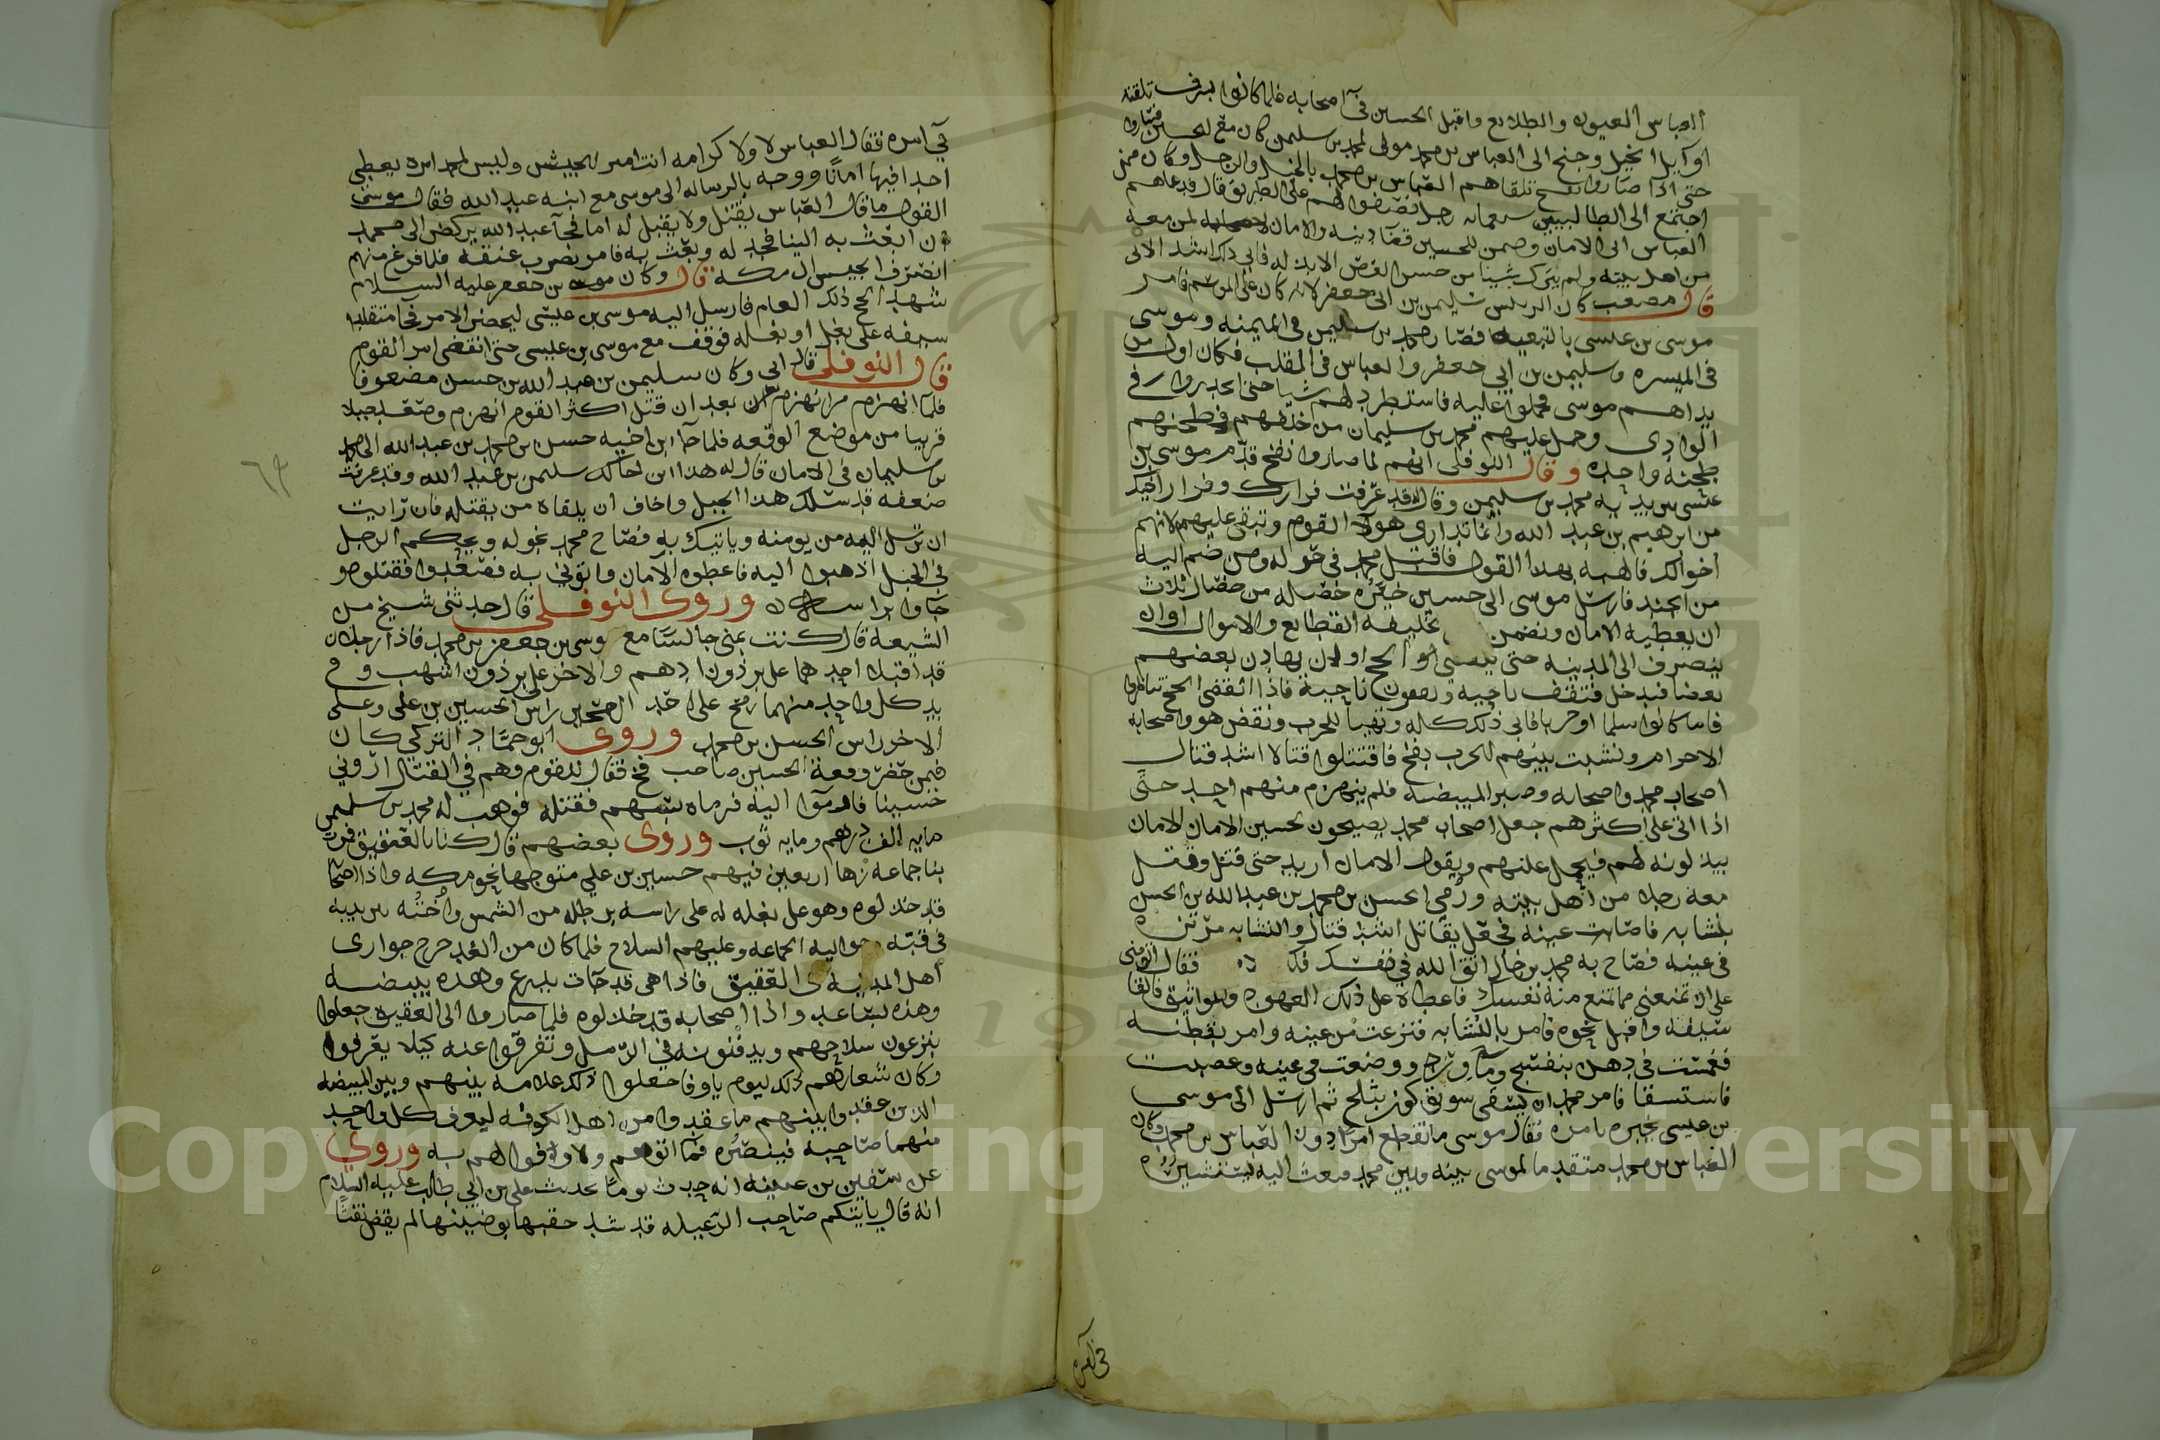 العباس العيون والطلايع واقبل الحسين في اصحابه فلما كانوا بسرف تلقته
اوآيل الخيل وجنح الى العباس بن محمد مولى لمحمد بن سليمن كان مع الحسين فساروا
حتى اذا صاروا بفخ تلقاهم العباس بن محمد بالخيل والرجل وكان ممن
اجتمع الى الطالبيين سبعمايه رجل فصفوا لهم على الطريق قال فدعاهم
العباس الى الامان وضمن للحسين قضا دينه والامان لمن معه
من اهل بيته ولم يترك شيئا من حسن العرض الا بذله فابى ذلك اشد الابى
قال مصعب كان الرييس سليمن بن ابى جعفر لانه كان على الموسم فامر
موسى بن عيسى بالتعبيه فصار محمد بن سليمن في الميمنه وموسى
في الميسره وسليمن بن ابي جعفر والعباس في القلب فكان اول من
بداهم موسى فحملوا عليه فاستطرد لهم شيا حتى انحدروا في
الوادى وحمل عليهم محمد بن سليمان من خلفهم فطحنهم
طحنه واحده وقال النوفلى انهم لما صاروا بفخ قدم موسى بن
عيسى بين يديه محمد بن سليمن وقال له قد عرفت فرارك وفرار اخيك
من ابرهيم بن عبد الله وانما تدارى هولآ القوم وتبقى عليهم لانهم
اخوالك فالهبه بهذا القول فاقبل محمد في خوله ومن ضم اليه
من الجند فارسل موسى الى حسين خيره خصله من خصال ثلاث
ان يعطيه الامان ويضمن الخليفه القطايع والاموال اوان
ينصرف الى المدينه حتى ينقضى الحج اوان يهادن بعضهم
بعضا فيدخل فيقف ناحيه ويقفون ناحية فاذا انقضى الحج تناظروا
فاما كانوا سلما او حربا فابى ذلك كله وتهيأ للحرب ونقض هو واصحابه
الاحرام ونشبت بينهم الحرب بفخ فاقتتلوا قتالا اشد قتال
اصحاب محمد واصحابه وصبر المبيضه فلم ينهزم منهم احد حتى
اذا اتى على اكثرهم جعل اصحاب محمد يصيحون بحسين الامان الامان
يبذلونه لهم فيحمل عليهم ويقول الامان اريد حتى قتل وقتل
معه رجال من اهل بيته ورمي الحسن بن محمد بن عبد الله بن الحسن
بنشابه فاصابت عينه فجعل يقاتل اشد قتال والنشابه مرتزه
في عينه فصاح به محمد بن خال اتق الله في نفسك فقال اتؤمني
على ان تمنعني مما تمنع منه نفسك فاعطاه على ذلك العهود والمواثيق فالقا
سيفه واقبل نحوه فامر بالنشابه فنزعت من عينه وامر بقطنه
فغمست في دهن بنفسج وماء ورد ووضعت في عينه وعصبت
فاستسقا فامر محمد ان يسقى سويق لوز بثلج ثم ارسل الى موسى
بن عيسى يخبره بامره فقال موسى ما نقطع امرا دون العباس بن محمد وكان
العباس بن محمد متقدما لموسى بينه وبين محمد فبعث اليه يستشيره
في امره
في امره فقال العباس لا ولا كرامه انت امير الجيش وليس لمحمد امره يعطي
احدا فيها امانا ووجه بالرساله الى موسى مع ابنه عبد الله فقال موسى
القول ما قال العباس يقتل ولا يقبل له امان فجآ عبد الله يركض الى محمد
ان ابعث به الينا فجد له وبعث به فامر بضرب عنقه فلما فرغ منهم
انصرف الجيش الى مكه قال وكان موسى بن جعفر عليه السلام
شهد الحج ذلك العام فارسل اليه موسى بن عيسى ليحضر الامر فجا متقلدا
سيفه على بغل او بغله فوقف مع موسى بن عيسى حتى انقضى امر القوم
قال النوفلى قال ابى وكان سليمن بن عبد الله بن حسن مضعوفا
فلما انهزم من انهزم بعد ان قتل اكثر القوم انهزم وصعد جبلا
قريبا من موضع الوقعه فلما جآ ابن اخيه حسن بن محمد بن عبد الله الى محمد
بن سليمان في الامان قال له هذا ابن خالك سليمن بن عبد الله وقد عرفت
ضعفه قد سلك هذا الجبل واخاف ان يلقاه من يقتله فان رايت
ان ترسل اليه من يومنه وياتيك به فصاح محمد بخوله ويحكم الرجل
في الجبل اذهبوا اليه فاعطوه الامان واتوني به فصعدوا فقتلوه و
جاوا براسه وروى النوفلى قال حدثني شيخ من
الشيعه قال كنت بمنى جالسا مع موسى بن جعفر بن محمد فاذا رجلان
قد اقبلا احدهما على برذون ادهم والاخر على برذون اشهب وفي
يد كل واحد منهما رمح على احد الرمحين راس الحسين بن على وعلى
الاخر راس الحسن بن محمد وروى ابو حماد التركي كان
فيمن حضر وقعة الحسين صاحب فخ فقال للقوم وهم في القتال اروني
حسينا فاوموا اليه فرماه بسهم فقتله فوهب له محمد بن سليمن
مايه الف درهم ومايه ثوب وروى بعضهم قال كنا بالعقيق فمرت
بنا جماعه زها اربعين فيهم حسين بن علي متوجها نحو مكه واذا اصحابه
قد خذلوه وهو على بغله له على راسه برطله من الشمس واخته بين يديه
في قبته وحواليه الجماعه وعليهم السلاح فلما كان من الغد خرج جوارى
اهل المدينه الى العقيق فاذا هى قد جآت بدرع وهذه ببيضه
وهذه بساعد واذا اصحابه قد خذلوه فلما صاروا الى العقيق جعلوا
ينزعون سلاحهم ويدفنونه في الرمل وتفرقوا عنه كيلا يعرفوا
وكان شعارهم ذلك اليوم ياوفا جعلوا ذلك علامه بينهم وبين المبيضه
الذين عقدوا بينهم ما عقدوا من اهل الكوفه ليعرف كل واحد
منهما صاحبه فينصره فما اتوهم ولا وافوا لهم به وروي
عن سفين بن عيينه انه حدث يوما بحديث علي بن ابي طالب عليه السلام
انه قال ياتيكم صاحب الرعيله قد شد حقبها بوضينها لم يقض تفثا
٦٩
Copyright © King Saud University